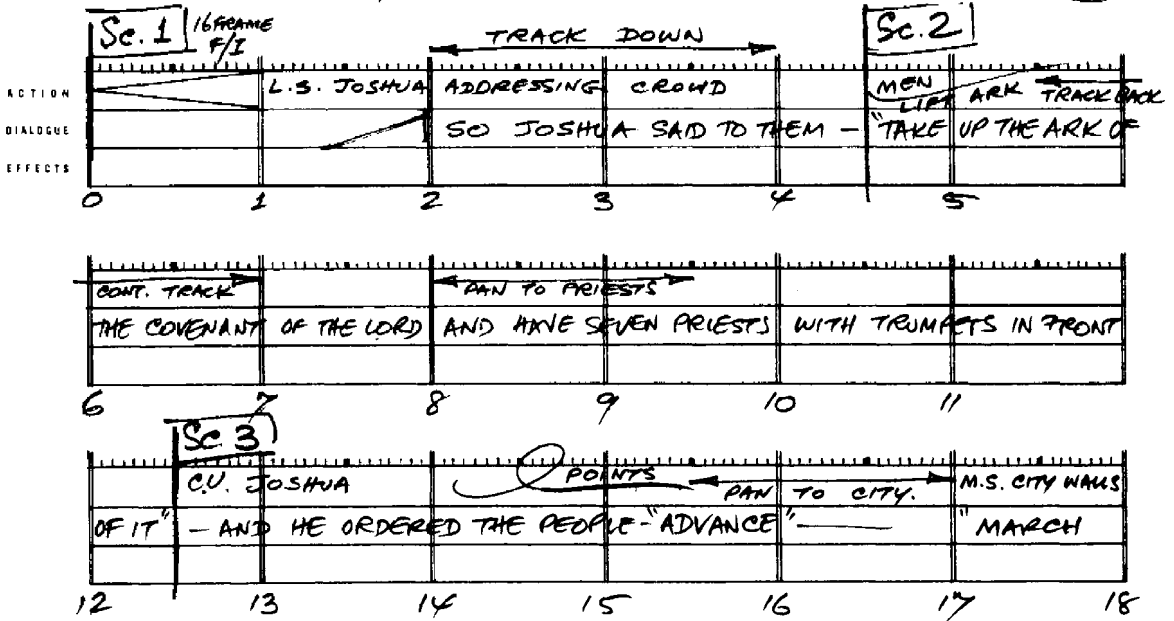 Sc. 1 16 FRAME F/I TRACK DOWN Sc. 2
ACTION L.S. JOSHUA ADDRESSING CROWD MEN LIFT ARK TRACK BACK
DIALOGUE SO JOSHUA SAID TO THEM – "TAKE UP THE ARK OF
EFFECTS
0 1 2 3 4 5
CONT. TRACK PAN TO PRIESTS
THE COVENANT OF THE LORD AND HAVE SEVEN PRIESTS WITH TRUMPETS IN FRONT
6 7 8 9 10 11
Sc 3
C.U. JOSHUA POINTS PAN TO CITY. M.S. CITY WALLS
OF IT" – AND HE ORDERED THE PEOPLE – "ADVANCE" — "MARCH
12 13 14 15 16 17 18